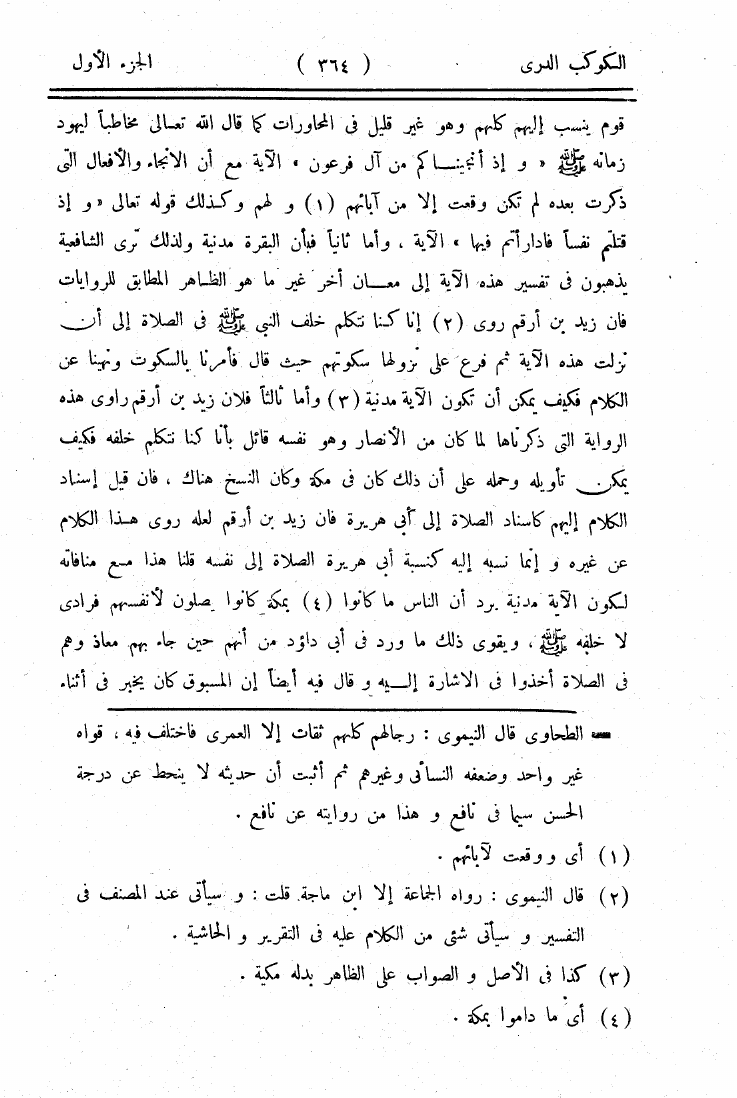 الكوكب الدرى ( ٣٦٤ ) الجزء الأول
قوم ينسب إليهم كلهم وهو غير قليل فى المحاورات كما قال الله تعالى مخاطباً ليهود
زمانه ﷺ « و إذ أنجيناكم من آل فرعون » الآية مع أن الانجاء والأفعال التى
ذكرت بعده لم تكن وقعت إلا من آبائهم (١) و لهم وكذلك قوله تعالى « و إذ
قتلتم نفساً فادارأتم فيها » الآية ، وأما ثانياً فبأن البقرة مدنية ولذلك ترى الشافعية
يذهبون فى تفسير هذه الآية إلى معان أخر غير ما هو الظاهر المطابق للروايات
فان زيد بن أرقم روى (٢) إنا كنا نتكلم خلف النبى ﷺ فى الصلاة إلى أن
نزلت هذه الآية ثم فرع على نزولها سكوتهم حيث قال فأمرنا بالسكوت ونهينا عن
الكلام فكيف يمكن أن تكون الآية مدنية (٣) وأما ثالثاً فلان زيد بن أرقم راوى هذه
الرواية التى ذكرناها لما كان من الأنصار وهو نفسه قائل بأنا كنا نتكلم خلفه فكيف
يمكن تأويله وحمله على أن ذلك كان فى مكة وكان النسخ هناك ، فان قيل إسناد
الكلام إليهم كاسناد الصلاة إلى أبى هريرة فان زيد بن أرقم لعله روى هذا الكلام
عن غيره و إنما نسبه إليه كنسبة أبى هريرة الصلاة إلى نفسه قلنا هذا مع منافاته
لكون الآية مدنية يرد أن الناس ما كانوا (٤) بمكة كانوا يصلون لأنفسهم فرادى
لا خلفه ﷺ ، ويقوى ذلك ما ورد فى أبى داؤد من أنهم حين جاء بهم معاذ وهم
فى الصلاة أخذوا فى الاشارة إليه و قال فيه أيضاً إن المسبوق كان يخبر فى أثناء
الطحاوى قال النيموى : رجالهم كلهم ثقات إلا العمرى فاختلف فيه ، قواه
غير واحد وضعفه النسائى وغيرهم ثم أثبت أن حديثه لا ينحط عن درجة
الحسن سيما فى نافع و هذا من روايته عن نافع .
(١) أى ووقعت لآبائهم .
(٢) قال النيموى : رواه الجماعة إلا ابن ماجة قلت : و سيأتى عند المصنف فى
التفسير و سيأتى شئى من الكلام عليه فى التقرير و الحاشية .
(٣) كذا فى الأصل و الصواب على الظاهر بدله مكية .
(٤) أى ما داموا بمكة .